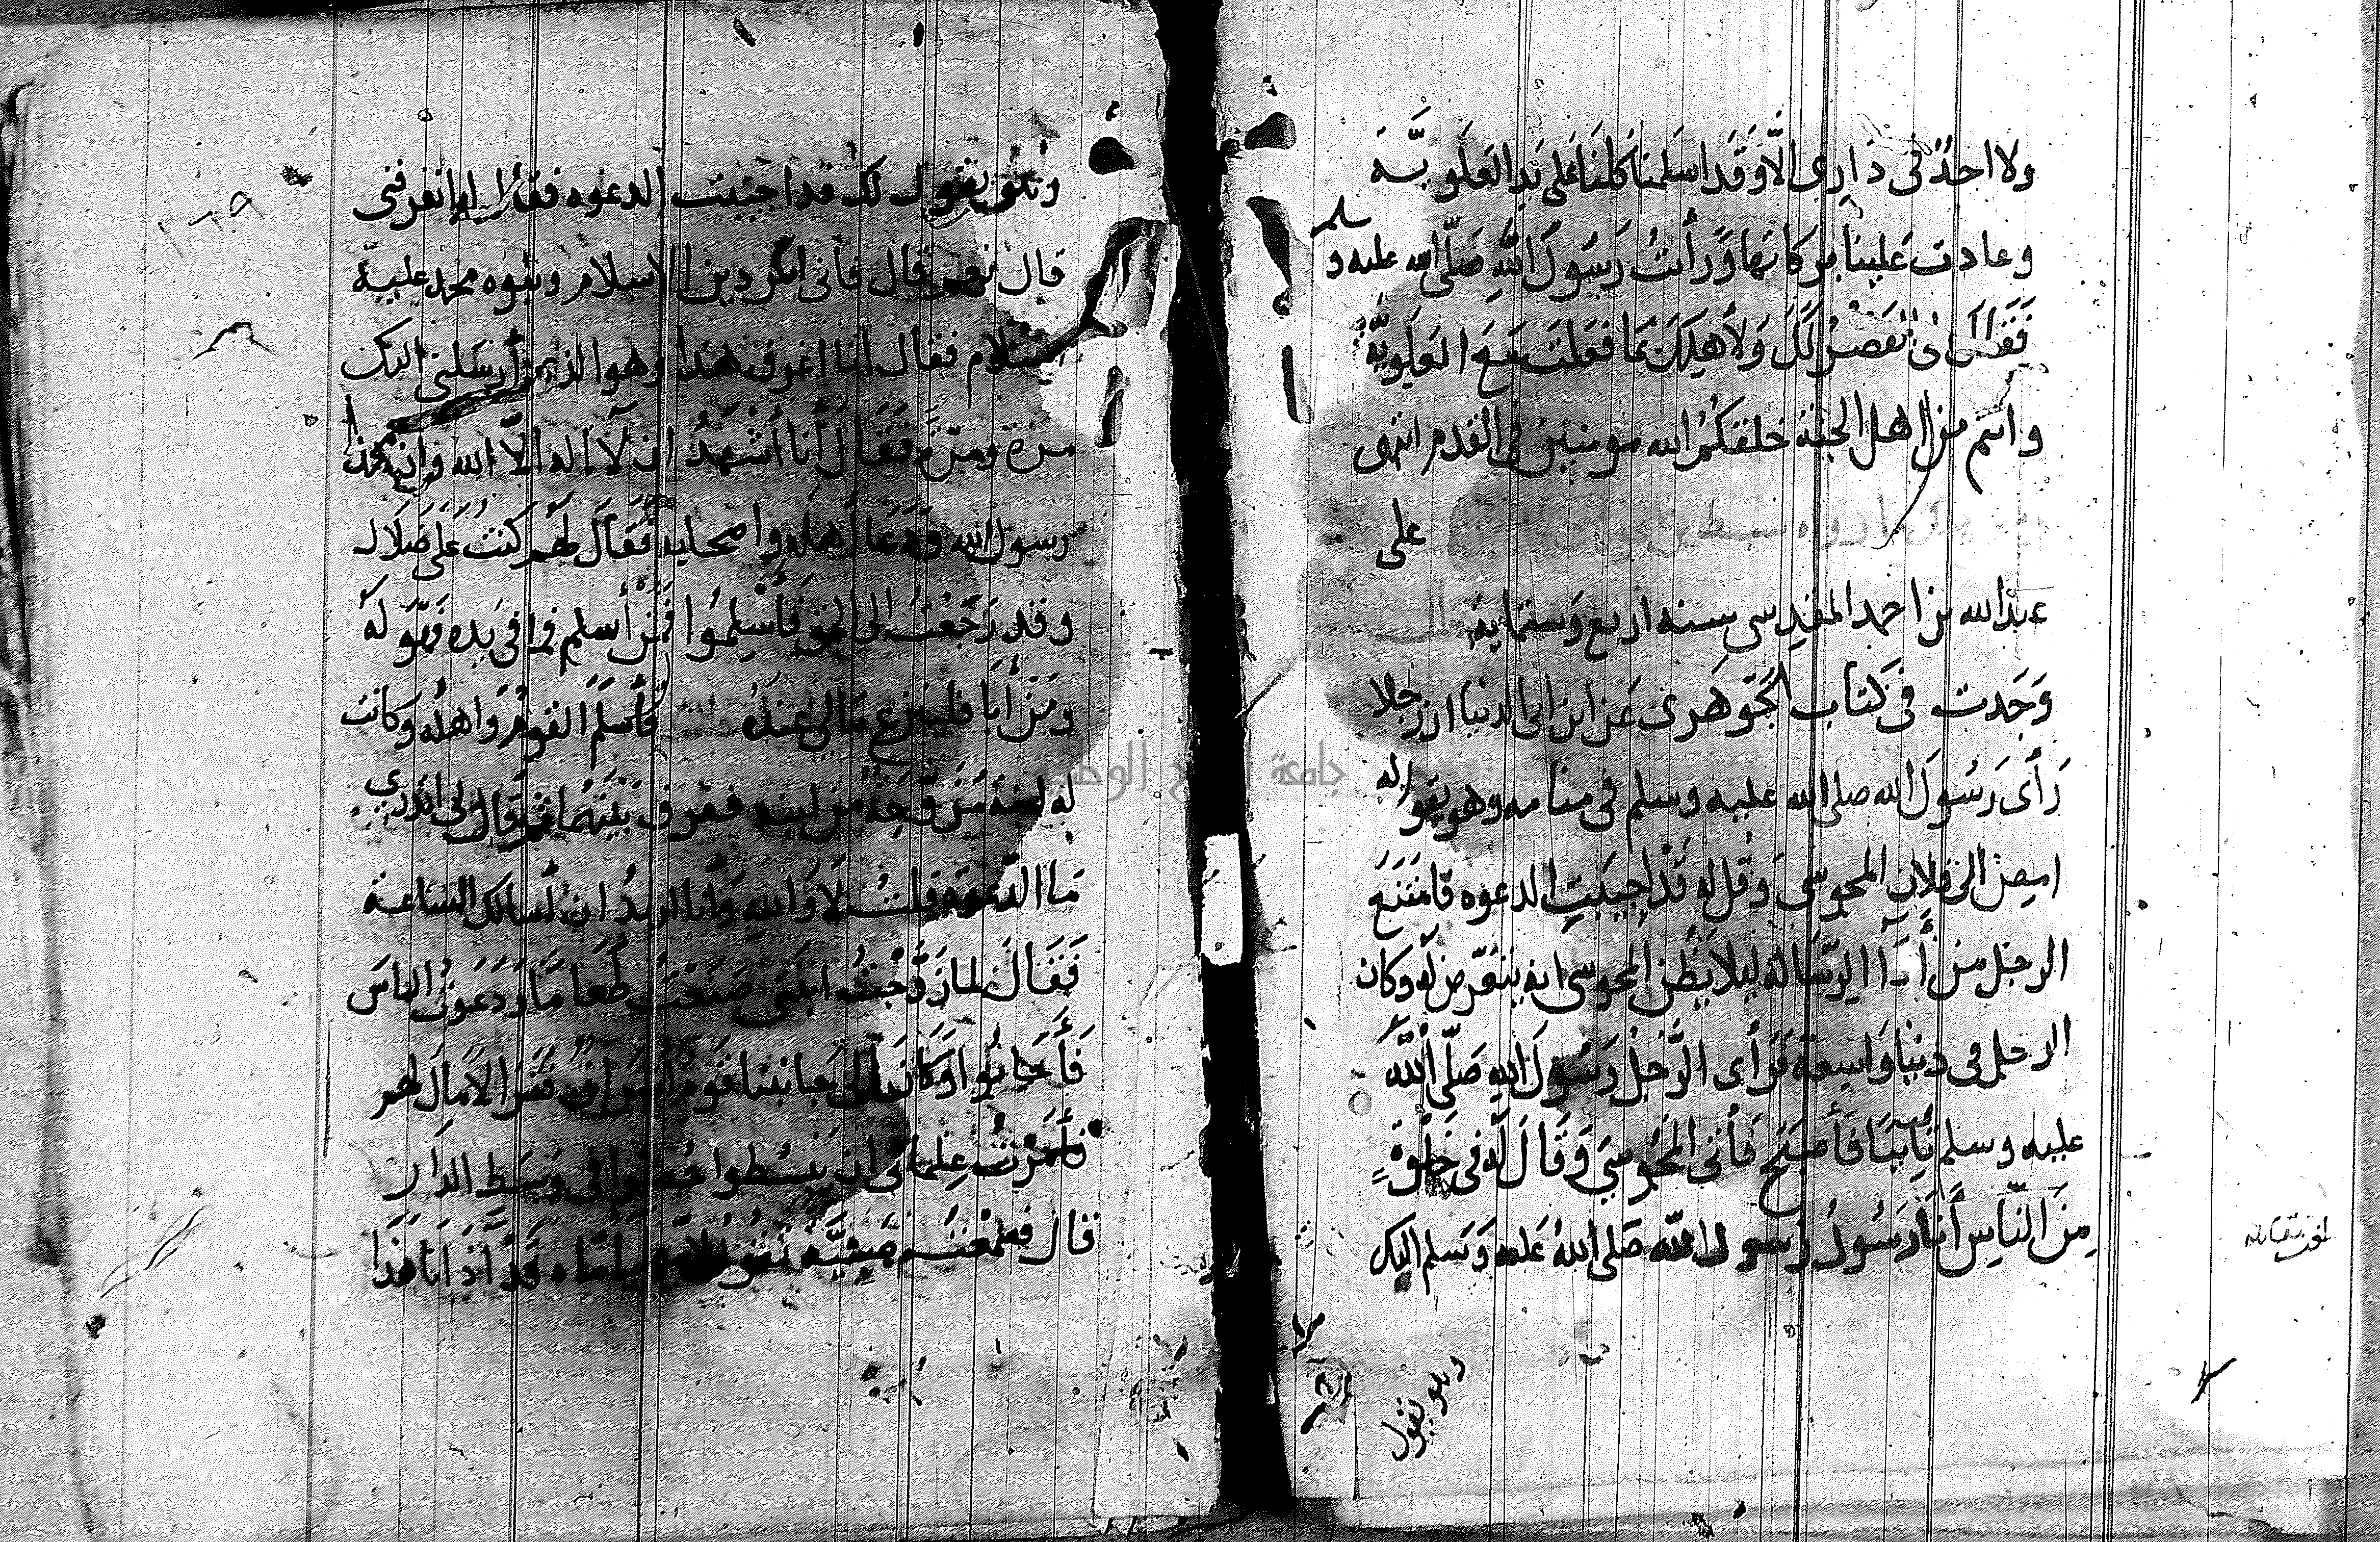 ولا احد في داري الا وقد اسلمنا كلنا على يد العلويه
وعادت علينا بركاتها ورأيت رسول الله صلى الله عليه و
سلم
فقال لي القصر لك ولأهلك بما فعلت مع العلويه
وانتم من اهل الجنة خلقكم الله مومنين في القدم انتهى
على
عبد الله بن احمد المقدسي سنه اربع وستمايه
وَجَدت في كتاب الجوهري عن ابن ابي الدنيا ان رجلا
رَأى رَسُولَ الله صلى الله عليه وسلم في منامه وهو يقول له
امض الى فلان المجوسي وقل له قد اجيبت الدعوه فامتنع
الرجل من أدآ الرسالة ليلا يظن المجوسي انه يتعرض له وكان
الرجل في دنيا واسعة فرأى الرجل رسول الله صلى الله
عليه وسلم ثانيا فأصبح فأتى المجوسي وقال له في خلوة
من الناس أنا رسول رسول الله صلى الله عليه وسلم اليك
وهو يقول
١٦٩
وهو يقول لك قد اجيبت الدعوه فقال له اتعرفني
قال نعم قال فاني انكر دين الاسلام ونبوه محمد عليه
السلام فقال انا اعرف هذا وهو الذي أرسلني اليك
مرة ومرة فقال أنا أشهد ان لا اله الا الله وان محمدا
رسول الله ودعا أهله واصحابه فقال لهم كنت على ضلال
وقد رجعت الى الحق فأسلموا فمن أسلم فما في يده فهو له
ومن أبا فلينزع مالي عنده فأسلم القوم واهله وكانت
له ابنة مزوجة من ابنه ففرق بينهما ثم قال لي اتدري
ما الدعوة قلت لا والله وانا اريد ان أسالك الساعة
فقال لما زوجت ابنتي صنعت طعاما ودعوت الناس
فأجابوا وكان الى جانبنا قوم أشراف فقرا لا مال لهم
فأمرت غلماني ان يبسطوا حصيرا في وسط الدار
قال فسمعت صبية تقول لأمها ياماه قد أذانا هذا